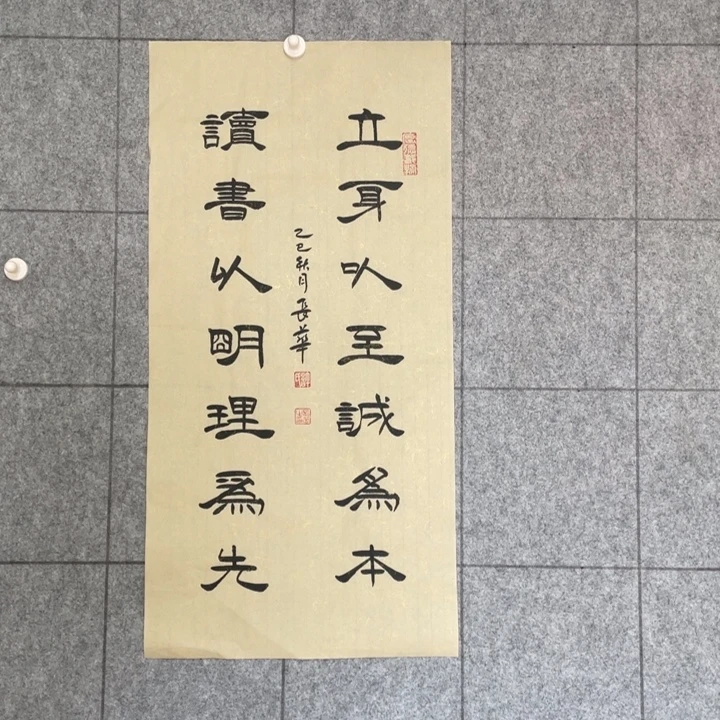 立身以至誠為本
讀書以明理為先
乙巳秋月長華